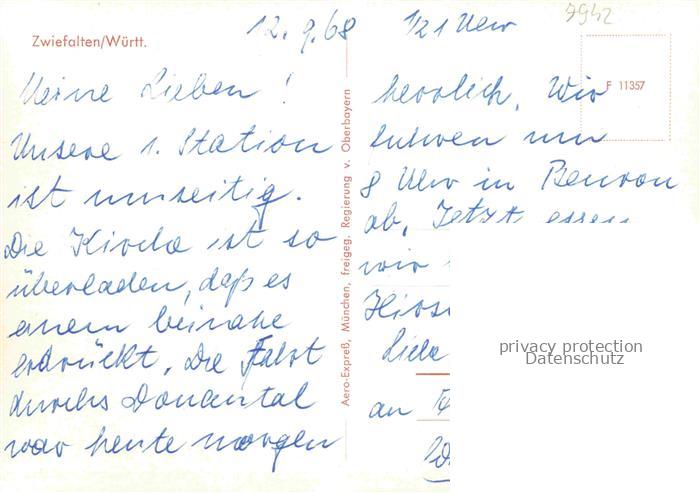 Zwiefalten/Württ.
12.9.68
1/21 Uhr
7942
F 11357
Meine Lieben!
Unsere 1. Station
ist umseitig.
Die Kirche ist so
überladen, daß es
einem beinahe
erdrückt. Die Fahrt
durchs Donautal
war heute morgen
herrlich. Wir
fuhren um
8 Uhr in Beuron
ab. Jetzt essen
wir
an
Aero-Expreß, München, freigeg. Regierung v. Oberbayern
privacy protection
Datenschutz